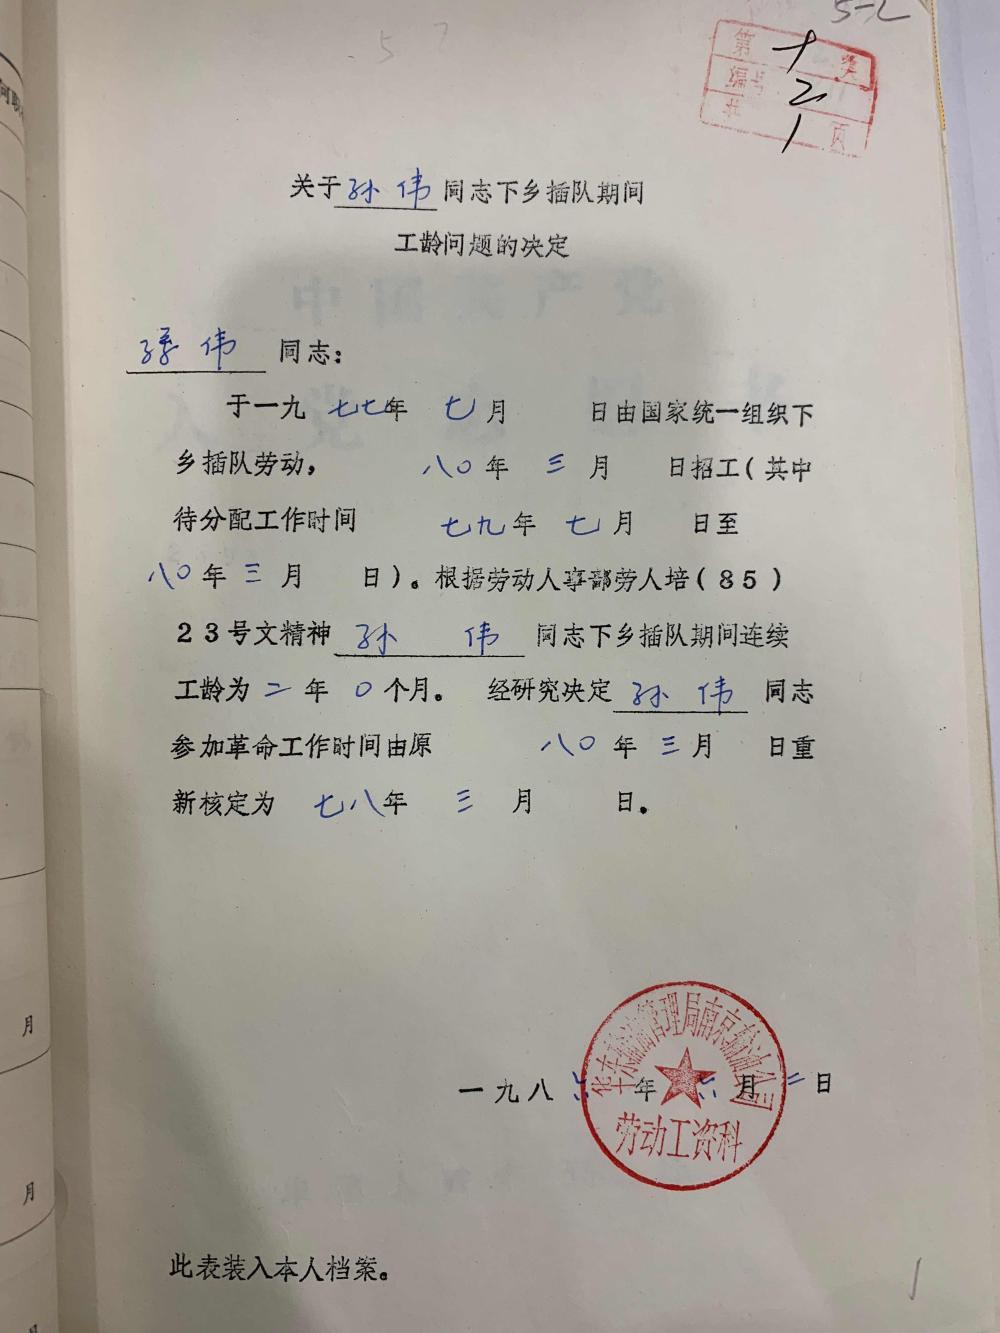 5-2
第 十 类
编号 2
共 1 页
关于孙伟同志下乡插队期间
工龄问题的决定
孙伟 同志：
于一九七七年七月 日由国家统一组织下
乡插队劳动， 八〇年三月 日招工（其中
待分配工作时间 七九年七月 日至
八〇年三月 日）。根据劳动人事部劳人培（85）
23号文精神 孙伟 同志下乡插队期间连续
工龄为二年0个月。 经研究决定 孙伟 同志
参加革命工作时间由原 八〇年三月 日重
新核定为 七八年三月 日。
华东输油管理局南京输油公司
劳动工资科
一九八六年六月二日
此表装入本人档案。
1
月
月